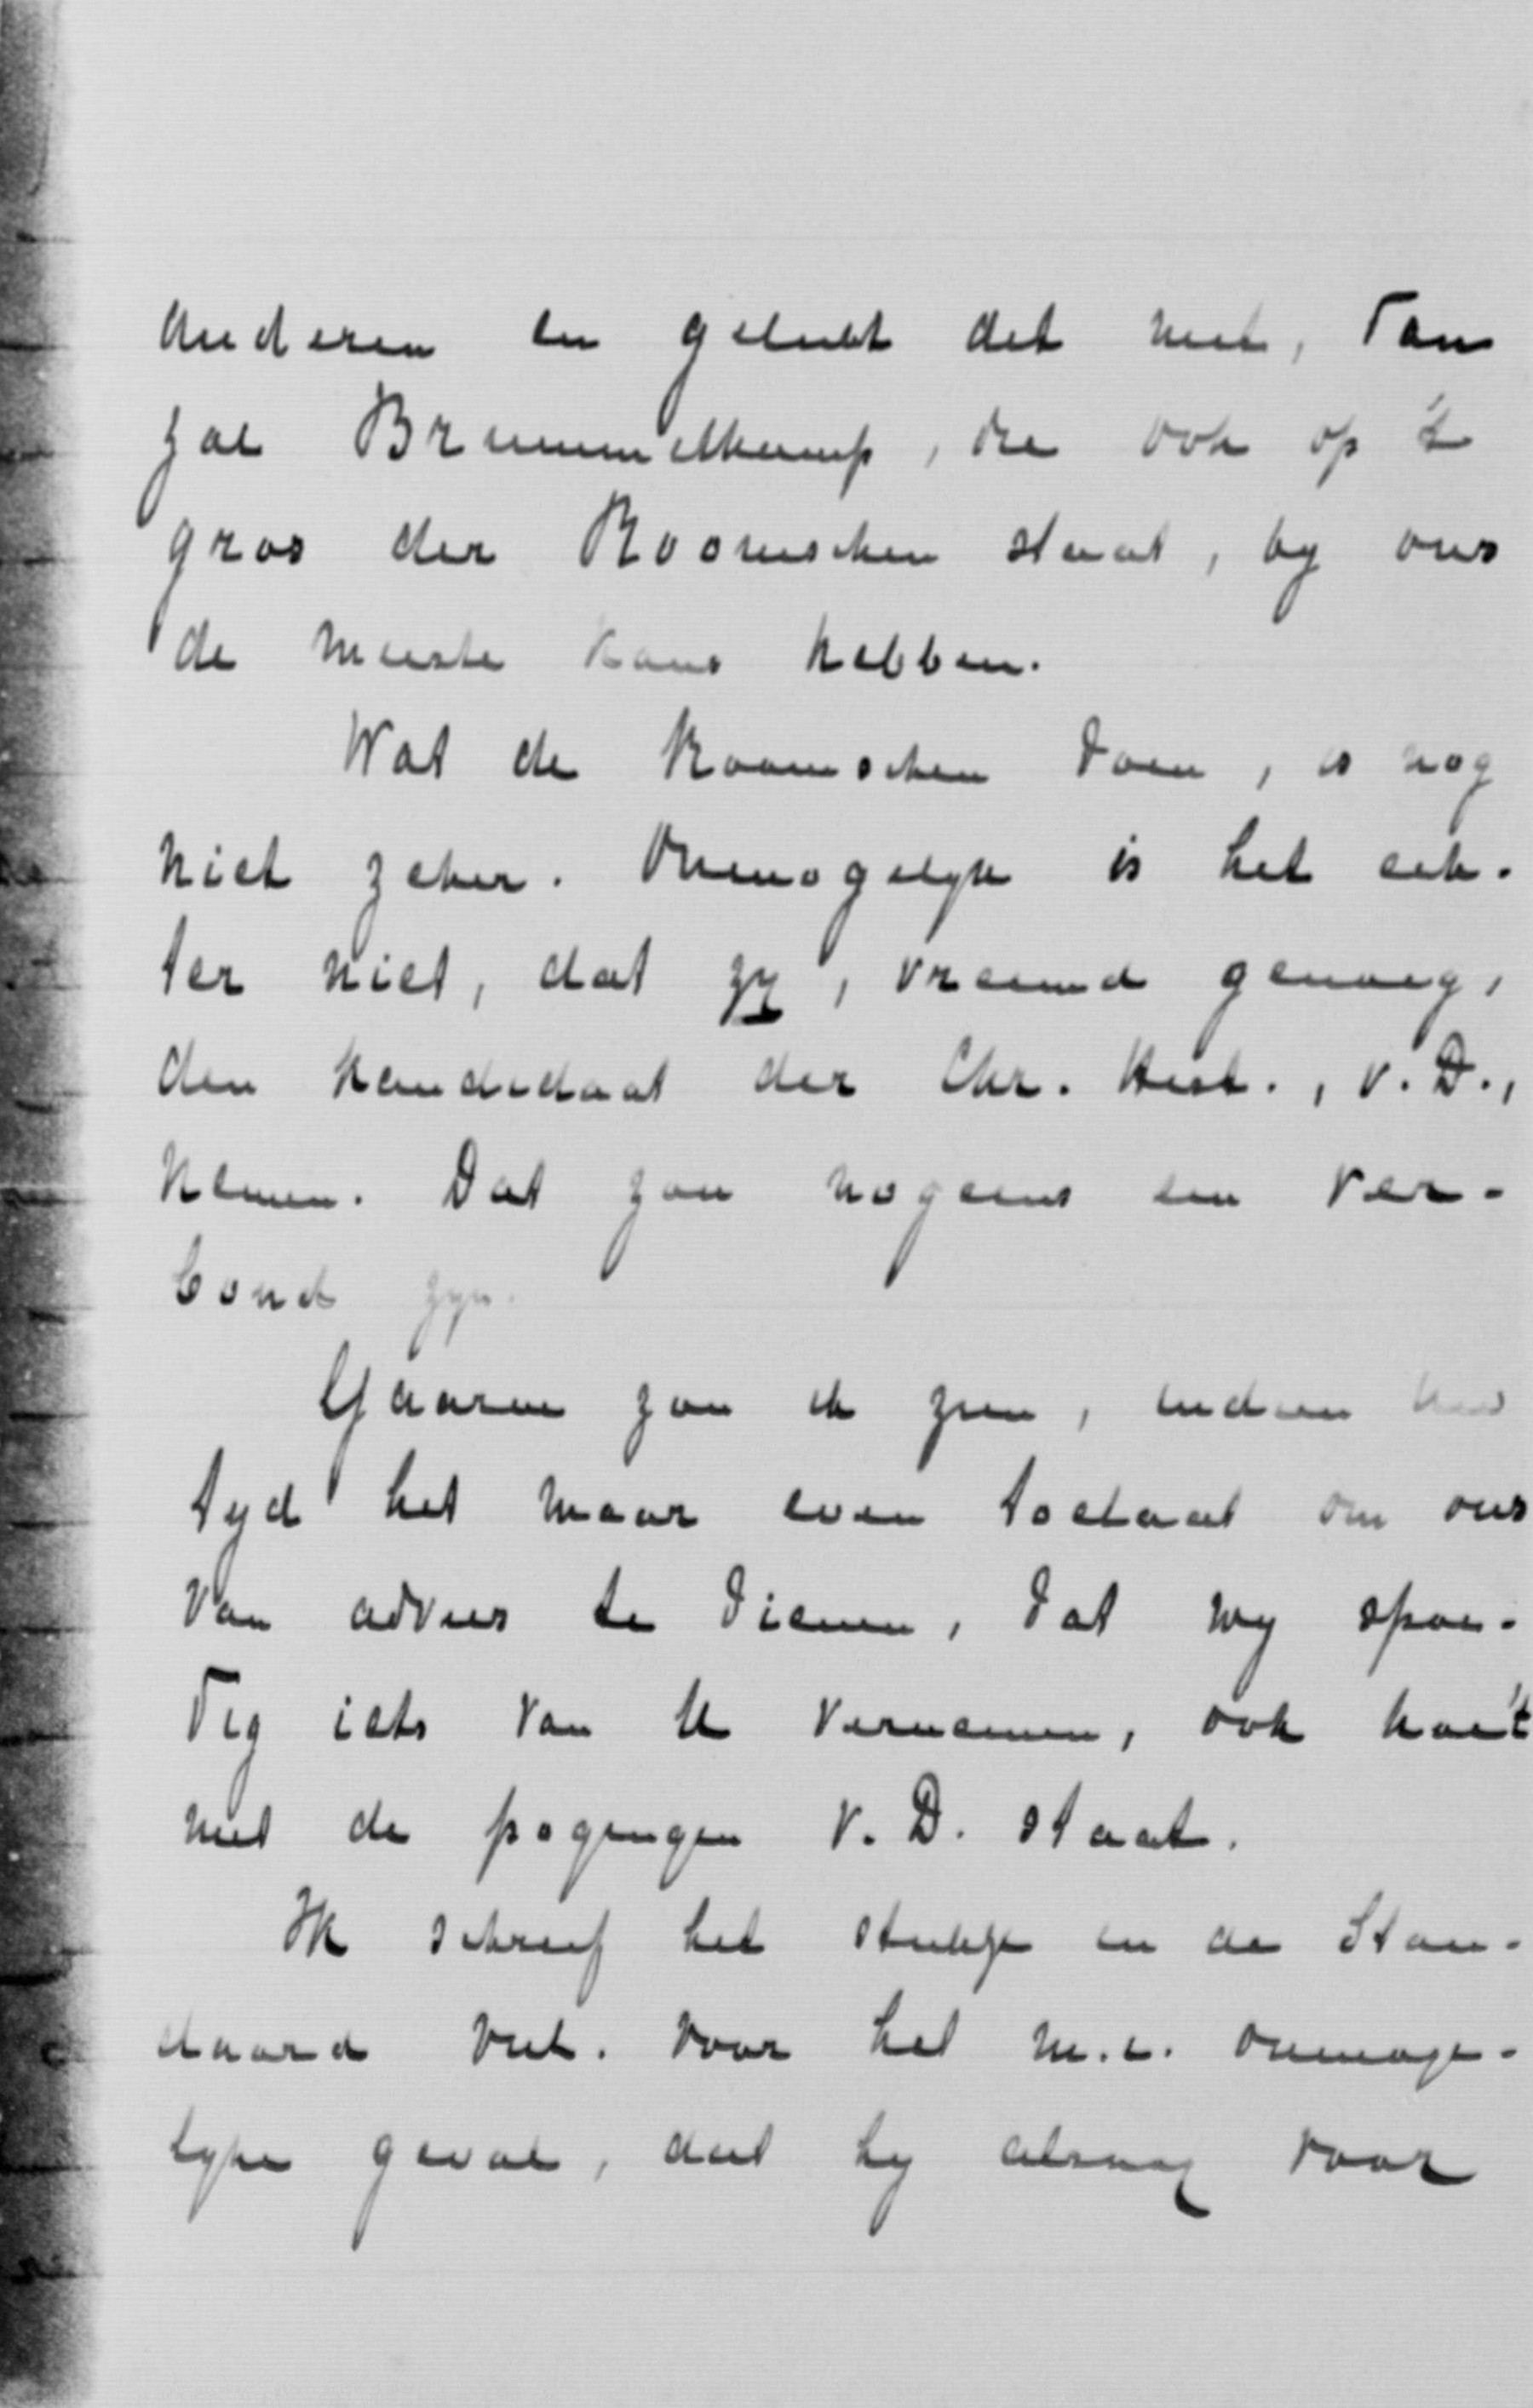 anderen en gelukt dat niet, dan
zal Brummelkamp, die ook op 't
gros der Roomschen staat, by ons
de meeste kans hebben.
Wat de Roomschen doen, is nog
niet zeker. Onmogelyk is het ech-
ter niet, dat zy, vreemd genoeg,
den kandidaat der Chr. Hist., v. D.,
nemen. Dat zou nogeens een ver-
bond zyn.
Gaarne zou ik zien, indien uw
tyd het maar even toelaat om ons
van advies te dienen, dat wy spoe-
dig iets van U vernemen, ook hoe 't
met de pogingen v. D. staat.
Ik schreef het stukje in de Stan-
daard uit. voor het m.i. onmoge-
lyke geval, dat hy alsnog voor